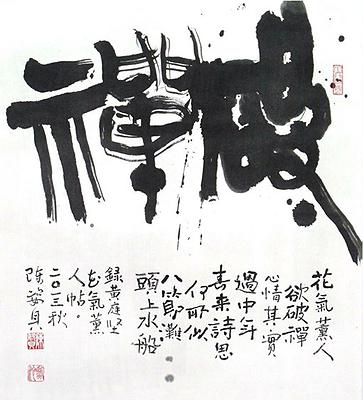 破禪
花氣薰人
欲破禪
心情其實
過中年
春来詩思
何所似
八節灘
頭上水船
録黃庭堅
花氣薰
人帖。
二〇三秋